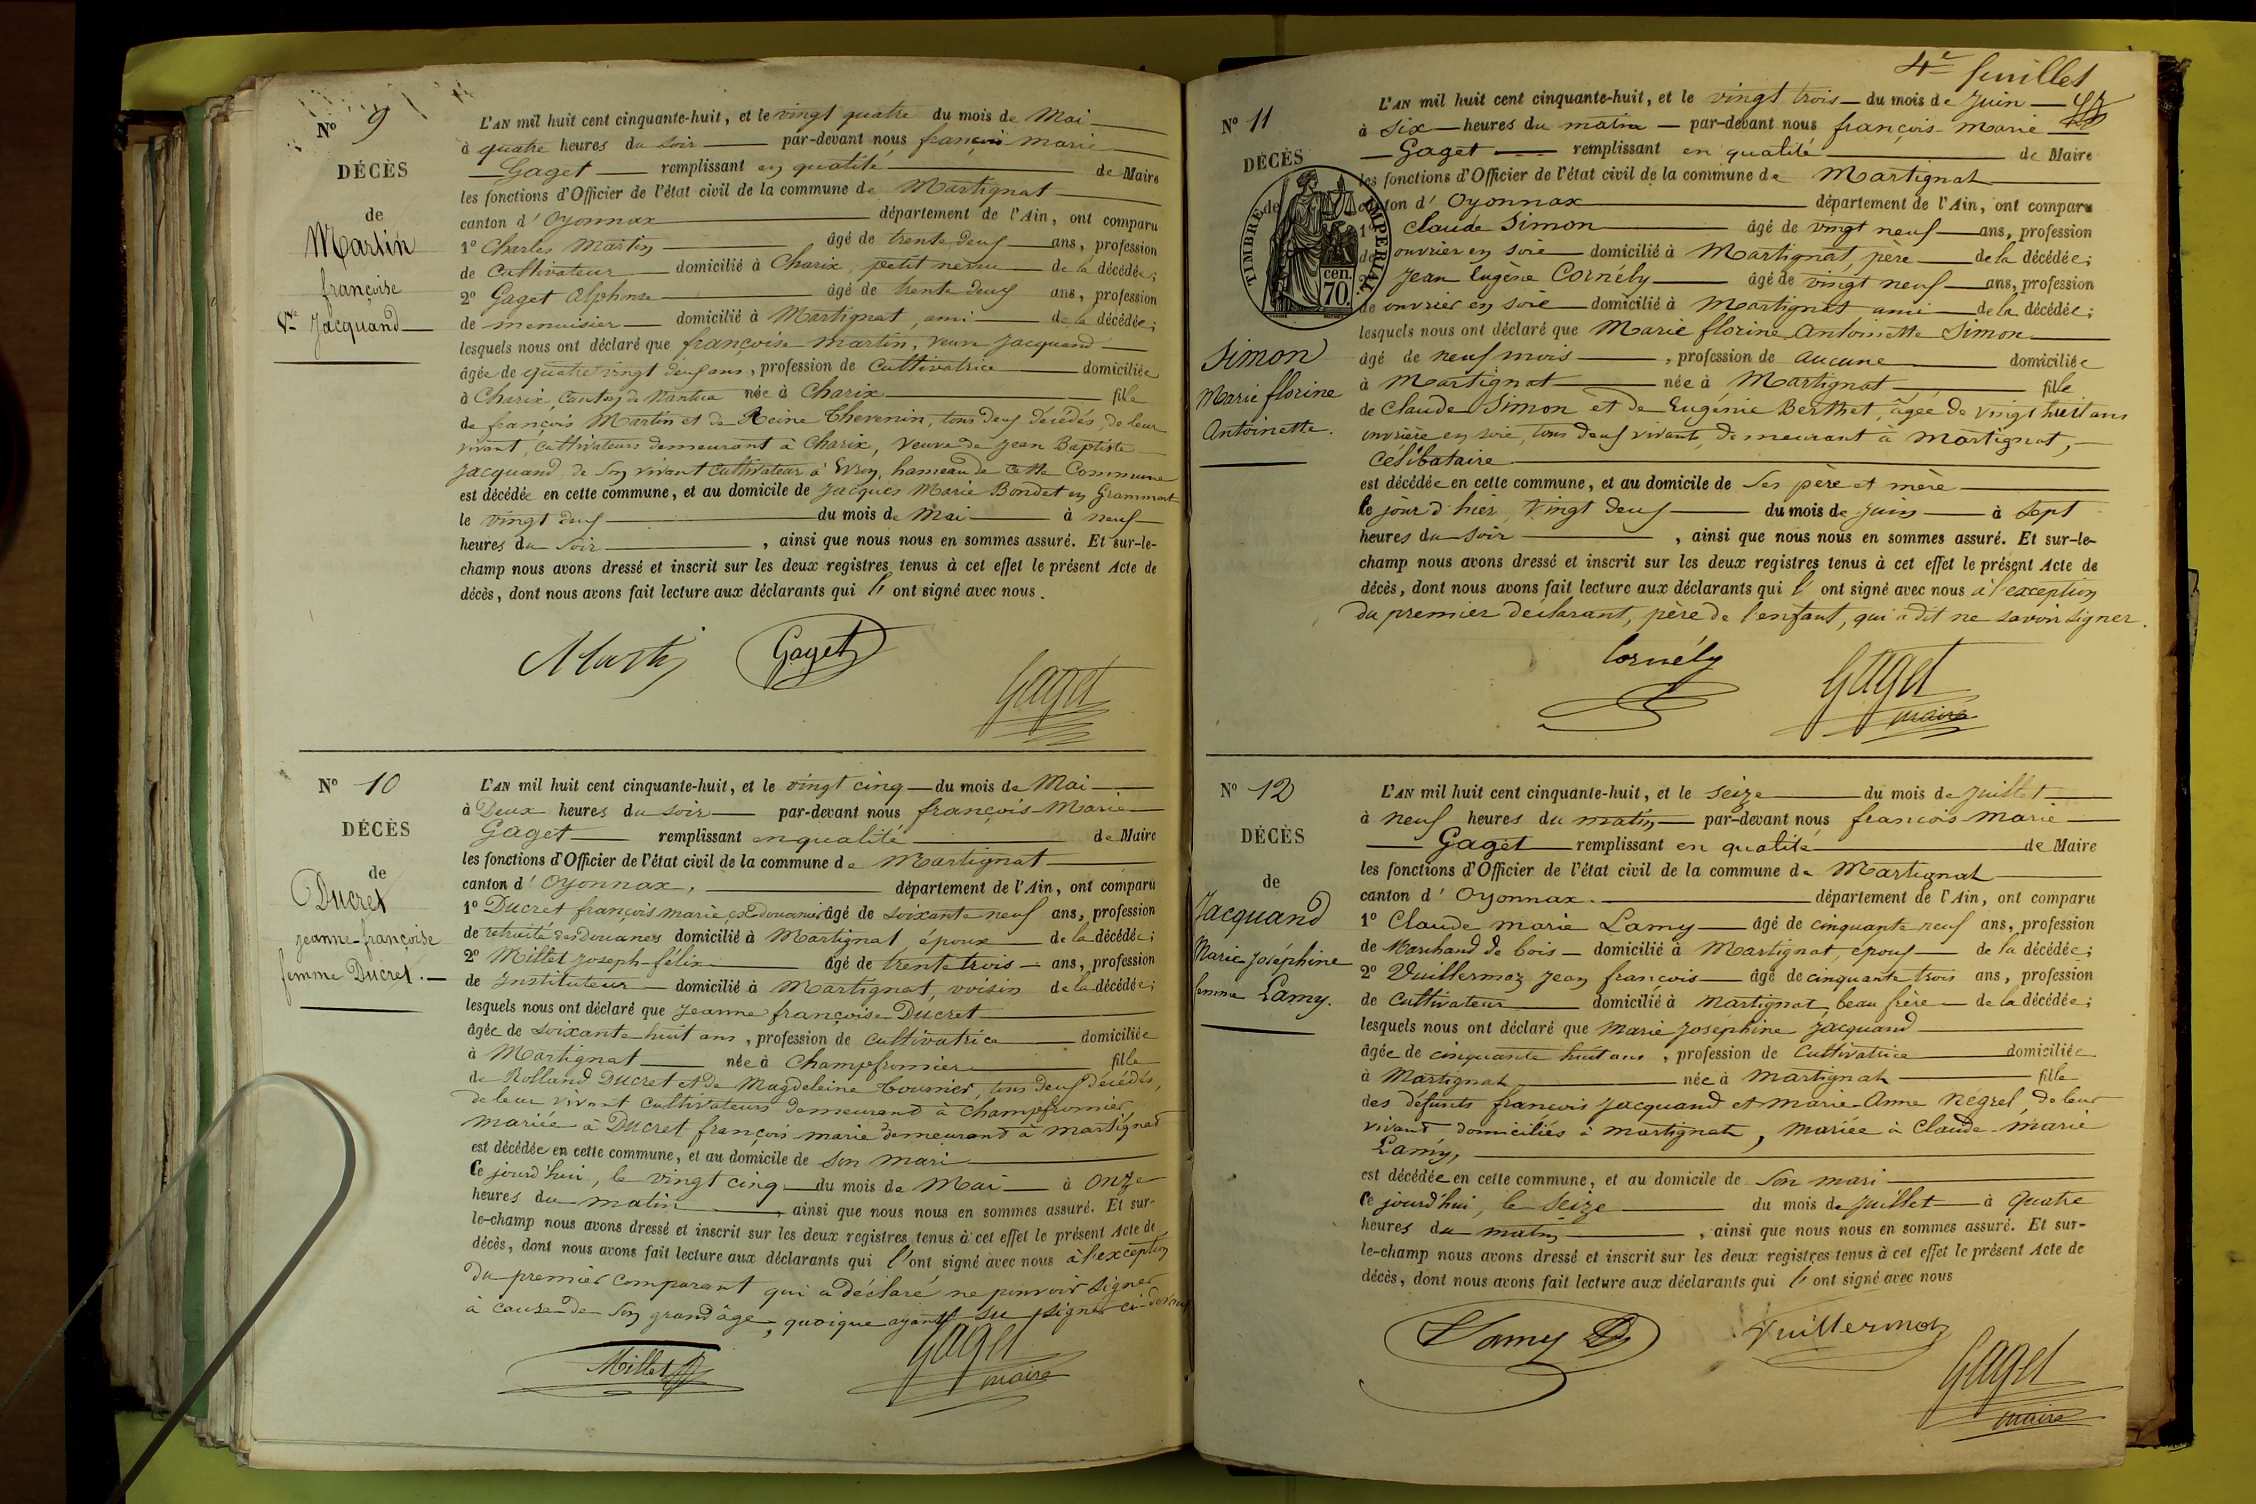 Nº 9
DÉCÈS
de
Martin
françoise
Vve Jacquand
L'AN mil huit cent cinquante-huit, et le vingt quatre du mois de Mai
à quatre heures du soir par-devant nous françois marie
Gaget remplissant en qualité de Maire
les fonctions d'Officier de l'état civil de la commune de Martignat
canton d'Oyonnax département de l'Ain, ont comparu
1º Charles Martin âgé de trente deux ans, profession
de Cultivateur domicilié à Charix, petit neveu de la décédée;
2º Gaget Alphonse âgé de trente deux ans, profession
de menuisier domicilié à Martignat, ami de la décédée;
lesquels nous ont déclaré que françoise Martin, veuve Jacquand
âgée de quatre vingt deux ans, profession de Cultivatrice domiciliée
à Charix, Canton de Nantua née à Charix fille
de françois Martin et de Reine Thevenin, tous deux décédés, de leur
vivant, cultivateurs demeurant à Charix, veuve de Jean Baptiste
Jacquand de son vivant Cultivateur à Evron, hameau de cette Commune
est décédée en cette commune, et au domicile de Jacques Marie Bondet en Grammont
le vingt deux du mois de Mai à neuf
heures du soir, ainsi que nous nous en sommes assuré. Et sur-le-
champ nous avons dressé et inscrit sur les deux registres tenus à cet effet le présent Acte de
décès, dont nous avons fait lecture aux déclarants qui l'ont signé avec nous.
Martin Gaget
Gaget
Nº 10
DÉCÈS
de
Ducret
Jeanne-françoise
femme Ducret.
L'AN mil huit cent cinquante-huit, et le vingt cinq du mois de Mai
à Deux heures du soir par-devant nous françois Marie
Gaget remplissant en qualité de Maire
les fonctions d'Officier de l'état civil de la commune de Martignat
canton d'Oyonnax, département de l'Ain, ont comparu
1º Ducret françois marie, exdouanier âgé de soixante neuf ans, profession
de retraité des douanes domicilié à Martignat, époux de la décédée;
2º Millet Joseph-félix âgé de trente trois ans, profession
de Instituteur domicilié à Martignat, voisin de la décédée;
lesquels nous ont déclaré que Jeanne françoise Ducret
âgée de soixante huit ans, profession de Cultivatrice domiciliée
à Martignat née à Champfromier fille
de Rolland Ducret et de Magdeleine Tournier, tous deux décédés,
de leur vivant cultivateurs demeurand à Champfromier,
mariée à Ducret françois marie demeurand à Martignat
est décédée en cette commune, et au domicile de son mari
Ce jourd'hui, le vingt cinq du mois de Mai à onze
heures du matin, ainsi que nous nous en sommes assuré. Et sur-
le-champ nous avons dressé et inscrit sur les deux registres tenus à cet effet le présent Acte de
décès, dont nous avons fait lecture aux déclarants qui l'ont signé avec nous à l'exception
du premier comparant qui a déclaré ne pouvoir signer
à cause de son grand âge, quoique ayant su signer ci-devant
Millet Gaget
maire
4e feuillet
Nº 11
DÉCÈS
de
TIMBRE IMPERIAL
cen.
70.
Simon
Marie florine
Antoinette.
L'AN mil huit cent cinquante-huit, et le vingt trois du mois de Juin
à six heures du matin par-devant nous françois-Marie
Gaget remplissant en qualité de Maire
les fonctions d'Officier de l'état civil de la commune de Martignat
canton d'Oyonnax département de l'Ain, ont comparu
1º Claude Simon âgé de vingt neuf ans, profession
de ouvrier en soie domicilié à Martignat, père de la décédée;
2º Jean Eugène Cornély âgé de vingt neuf ans, profession
de ouvrier en soie domicilié à Martignat ami de la décédée;
lesquels nous ont déclaré que Marie florine Antoinette Simon
âgé de neuf mois, profession de aucune domiciliée
à Martignat née à Martignat fille
de Claude Simon et de Eugénie Berthet, âgée de vingt huit ans
ouvrière en soie, tous deux vivants, demeurant à Martignat,
célibataire
est décédée en cette commune, et au domicile de ses père et mère
le jour d'hier, vingt deux du mois de Juin à sept
heures du soir, ainsi que nous nous en sommes assuré. Et sur-le-
champ nous avons dressé et inscrit sur les deux registres tenus à cet effet le présent Acte de
décès, dont nous avons fait lecture aux déclarants qui l'ont signé avec nous à l'exception
du premier déclarant, père de l'enfant, qui a dit ne savoir signer.
Cornély Gaget
maire
Nº 12
DÉCÈS
de
Jacquand
Marie Joséphine
femme Lamy.
L'AN mil huit cent cinquante-huit, et le seize du mois de Juillet
à neuf heures du matin par-devant nous francois Marie
Gaget remplissant en qualité de Maire
les fonctions d'Officier de l'état civil de la commune de Martignat
canton d'Oyonnax. département de l'Ain, ont comparu
1º Claude marie Lamy âgé de cinquante neuf ans, profession
de Marchand de bois domicilié à Martignat, époux de la décédée;
2º Vuillermoz Jean francois âgé de cinquante trois ans, profession
de Cultivateur domicilié à Martignat, beau frère de la décédée;
lesquels nous ont déclaré que Marie Joséphine Jacquand
âgée de cinquante huit ans, profession de Cultivatrice domiciliée
à Martignat née à Martignat fille
des défunts françois Jacquand et Marie-Anne Négrel, de leur
vivant domiciliés à Martignat, mariée à Claude-Marie
Lamy,
est décédée en cette commune, et au domicile de son mari
Ce jourd'hui, le seize du mois de Juillet à quatre
heures du matin, ainsi que nous nous en sommes assuré. Et sur-
le-champ nous avons dressé et inscrit sur les deux registres tenus à cet effet le présent Acte de
décès, dont nous avons fait lecture aux déclarants qui l'ont signé avec nous
Lamy Vuillermoz
Gaget
maire